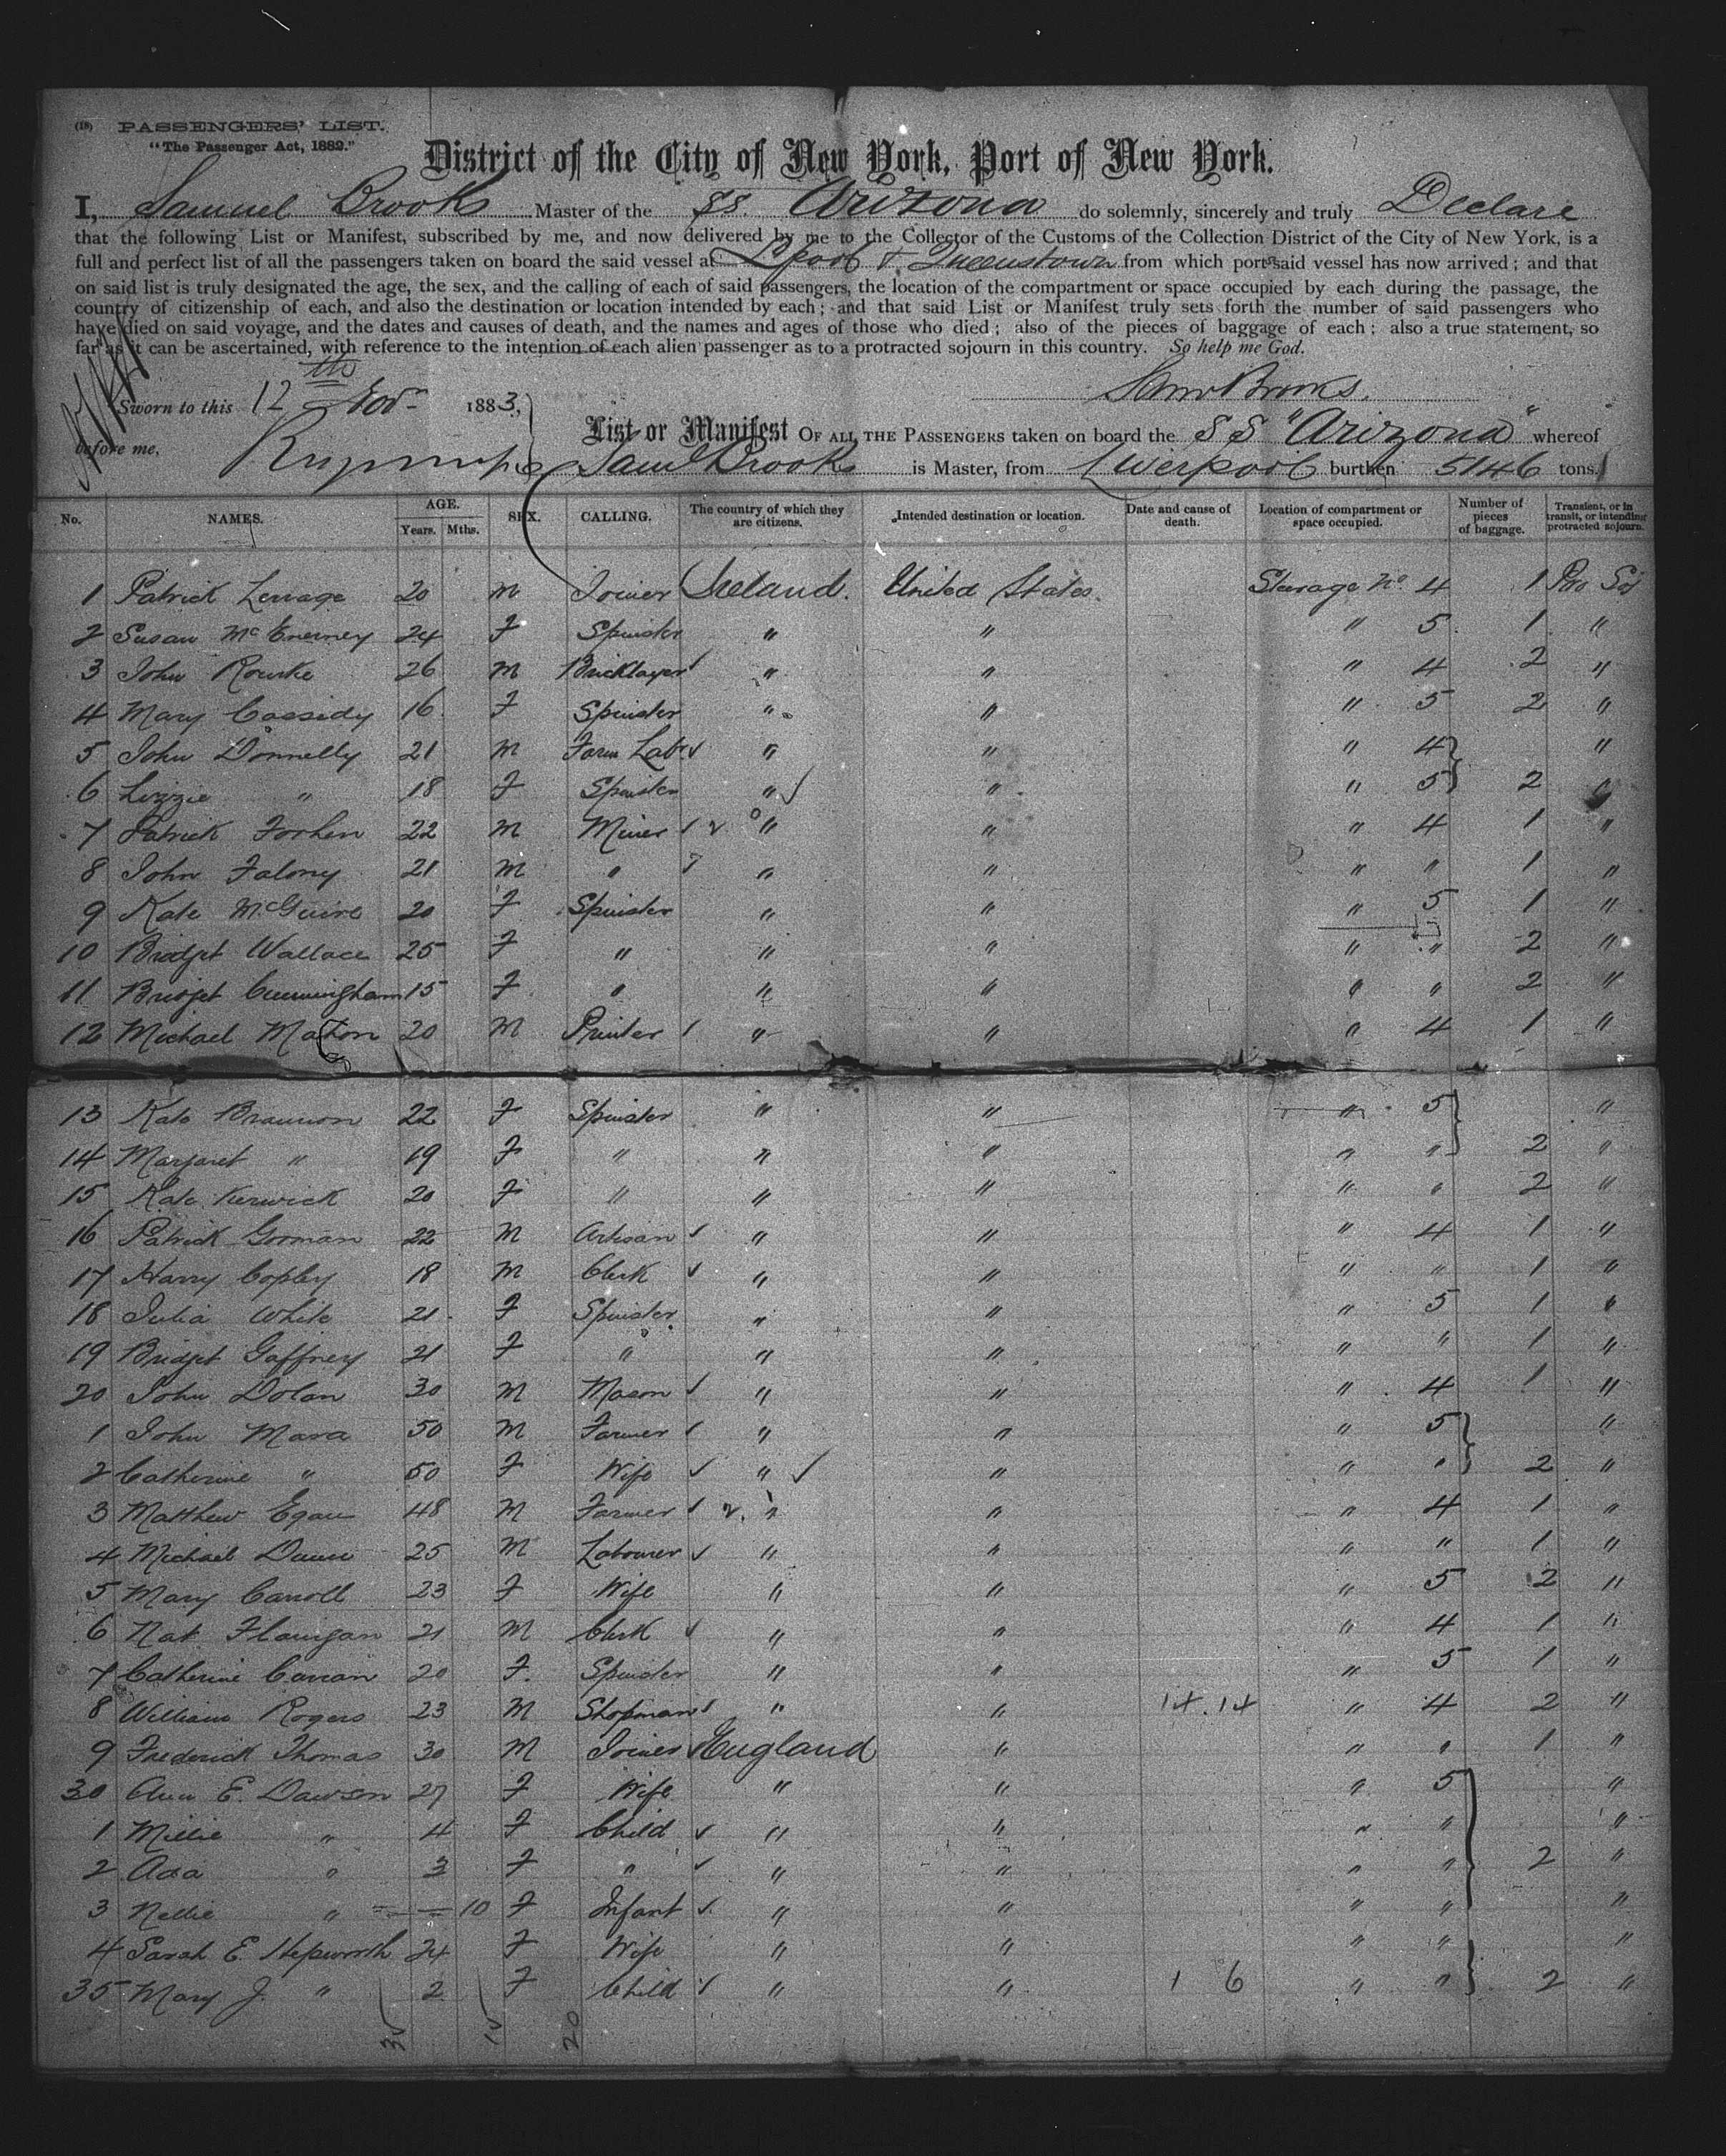 (18) PASSENGERS' LIST.
"The Passenger Act, 1882."
District of the City of New York, Port of New York.
I, Samuel Brooks Master of the SS. Arizona do solemnly, sincerely and truly Declare
that the following List or Manifest, subscribed by me, and now delivered by me to the Collector of the Customs of the Collection District of the City of New York, is a
full and perfect list of all the passengers taken on board the said vessel at L'pool & Queenstown from which ports said vessel has now arrived; and that
on said list is truly designated the age, the sex, and the calling of each of said passengers, the location of the compartment or space occupied by each during the passage, the
country of citizenship of each, and also the destination or location intended by each; and that said List or Manifest truly sets forth the number of said passengers who
have died on said voyage, and the dates and causes of death, and the names and ages of those who died; also of the pieces of baggage of each; also a true statement, so
far as it can be ascertained, with reference to the intention of each alien passenger as to a protracted sojourn in this country. So help me God.
Sworn to this 12th Nov. 1883, Saml Brooks.
before me,
List or Manifest OF ALL THE PASSENGERS taken on board the SS "Arizona" whereof
Saml Brooks is Master, from Liverpool burthen 5146 tons.
No. NAMES. AGE. Years. Mths. SEX. CALLING. The country of which they are citizens. Intended destination or location. Date and cause of death. Location of compartment or space occupied. Number of pieces of baggage. Transient, or in transit, or intending protracted sojourn.
1 Patrick 20 M Joiner Ireland. United States. Steerage No. 4 1 Pro Soj
2 Susan McEnerney 24 F Spinster " " " 5 1 "
3 John Rourke 26 M Bricklayer " " " 4 2 "
4 Mary Cassidy 16 F Spinster " " " 5 2 "
5 John Donnelly 21 M Farm Labr " " " 4 "
6 Lizzie " 18 F Spinster " " " 5 2 "
7 Patrick 22 M Miner " " " 4 1 "
8 John Falony 21 M " " " " " 1 "
9 Kate McGuire 20 F Spinster " " " 5 1 "
10 Bridget Wallace 25 F " " " " " 2 "
11 Bridget Cunningham 15 F " " " " " 2 "
12 Michael Mahon 20 M Printer " " " 4 1 "
13 Kate Brannon 22 F Spinster " " " 5 "
14 Margaret " 19 F " " " " " 2 "
15 Kate Kerwick 20 F " " " " " 2 "
16 Patrick Gorman 22 M Artisan " " " 4 1 "
17 Harry Copley 18 M Clerk " " " " 1 "
18 Julia White 21 F Spinster " " " 5 1 "
19 Bridget Gaffney 21 F " " " " " 1 "
20 John Dolan 30 M Mason " " " 4 1 "
1 John Mara 50 M Farmer " " " 5 "
2 Catherine " 50 F Wife " " " " 2 "
3 Matthew Egan 48 M Farmer " " " 4 1 "
4 Michael Dunn 25 M Labourer " " " " 1 "
5 Mary Carroll 23 F Wife " " " 5 2 "
6 Nat. Flanigan 21 M Clerk " " " 4 1 "
7 Catherine Curran 20 F. Spinster " " " 5 1 "
8 William Rogers 23 M Shopman " " 14.14 " 4 2 "
9 Frederick Thomas 30 M Joiner England " " " 1 "
30 Ann E. Dawson 27 F Wife " " " 5 "
1 Millie " 4 F Child " " " " "
2 Ada " 3 F " " " " " 2 "
3 Nellie " 10 F Infant " " " " "
4 Sarah E. Hepworth 24 F Wife " " " " "
35 Mary J. " 2 F Child " " 1 6 " " 2 "
20